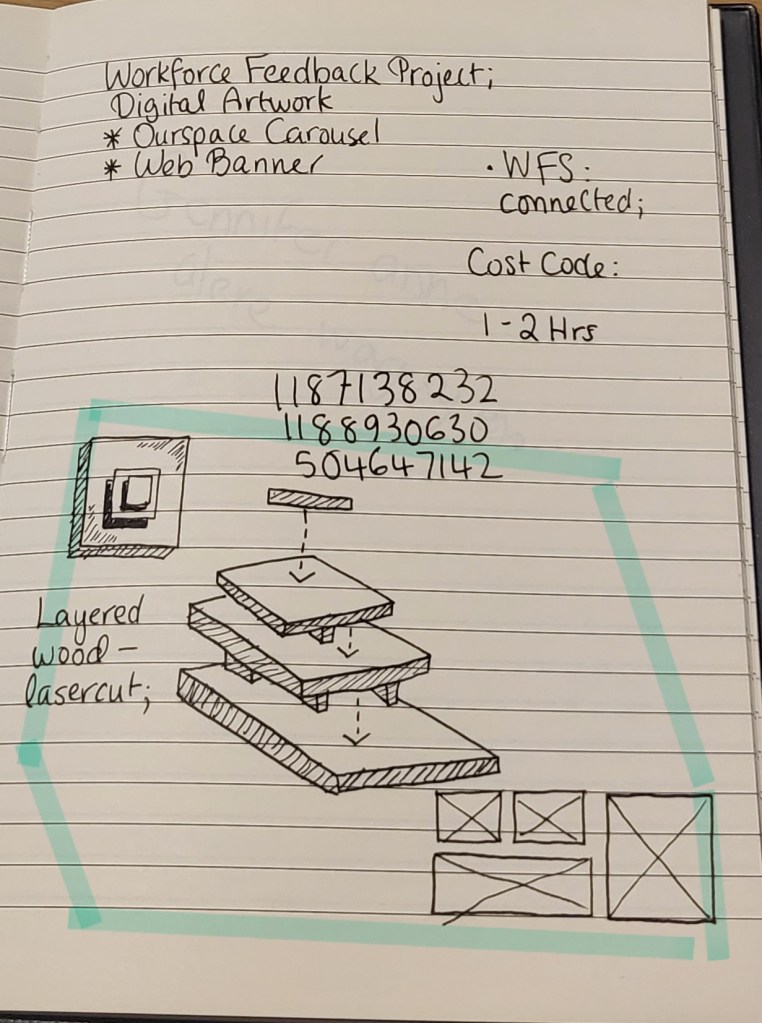 Workforce Feedback Project;
Digital Artwork
* Ourspace Carousel
* Web Banner
· WFS:
connected;
Cost Code:
1-2 Hrs
1187138232
1188930630
504647142
Layered
wood -
lasercut;